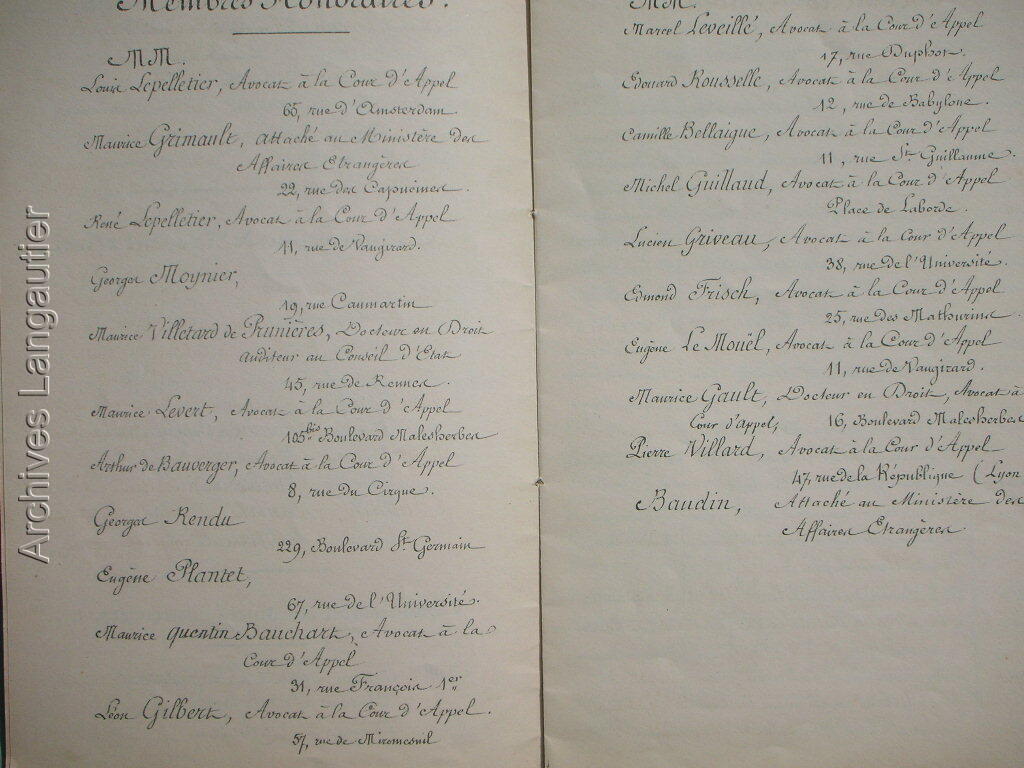 Membres Honoraires.
MM.
Louis Lepelletier, Avocat à la Cour d'Appel
65, rue d'Amsterdam
Maurice Grimault, attaché au Ministère des
Affaires Etrangères
22, rue des Capucines.
René Lepelletier, Avocat à la Cour d'Appel
11, rue de Vaugirard.
Georges Moynier,
19, rue Caumartin
Maurice Villetard de Prunières, Docteur en Droit
auditeur au Conseil d'Etat
45, rue de Rennes.
Maurice Levert, Avocat à la Cour d'Appel
105 bis Boulevard Malesherbes
Arthur de Bauverger, Avocat à la Cour d'Appel
8, rue du Cirque.
Georges Rendu
229, Boulevard St Germain
Eugène Plantet,
67, rue de l'Université.
Maurice quentin Bauchart, Avocat à la
Cour d'Appel
31, rue François 1er
Léon Gilbert, Avocat à la Cour d'Appel.
57, rue de Miromesnil
MM.
Marcel Leveillé, Avocat à la Cour d'Appel
17, rue Duphot.
Edouard Rousselle, Avocat à la Cour d'Appel
12, rue de Babylone.
Camille Bellaigue, Avocat à la Cour d'Appel
11, rue St Guillaume.
Michel Guillaud, Avocat à la Cour d'Appel
Place de Laborde.
Lucien Griveau, Avocat à la Cour d'Appel
38, rue de l'Université.
Edmond Frisch, Avocat à la Cour d'Appel
25, rue des Mathurins.
Eugène Le Mouël, Avocat à la Cour d'Appel
11, rue de Vaugirard.
Maurice Gault, Docteur en Droit, Avocat à
Cour d'appel, 16, Boulevard Malesherbes
Pierre Villard, Avocat à la Cour d'Appel
47, rue de la République (Lyon
Baudin, Attaché au Ministère des
Affaires Etrangères
Archives Langautier